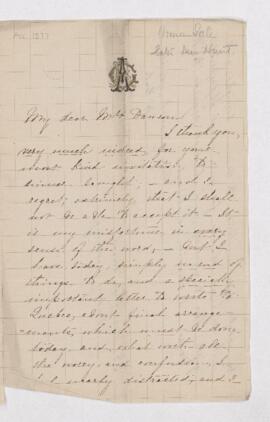 My dear Mrs Dawson
I thank you,
very much indeed, for your
most kind invitation, to
dinner tonight; – and I
regret, extremely, that I shall
not be able to accept it – It
is my misfortune, in every
sense of the word, – but I
have, today, simply no end of
things to do, and a specially
important letter to write to
Quebec, about final arrange-
ments, which must be done
today, and what with all
the worry and confusion, I
nearly distracted, and I